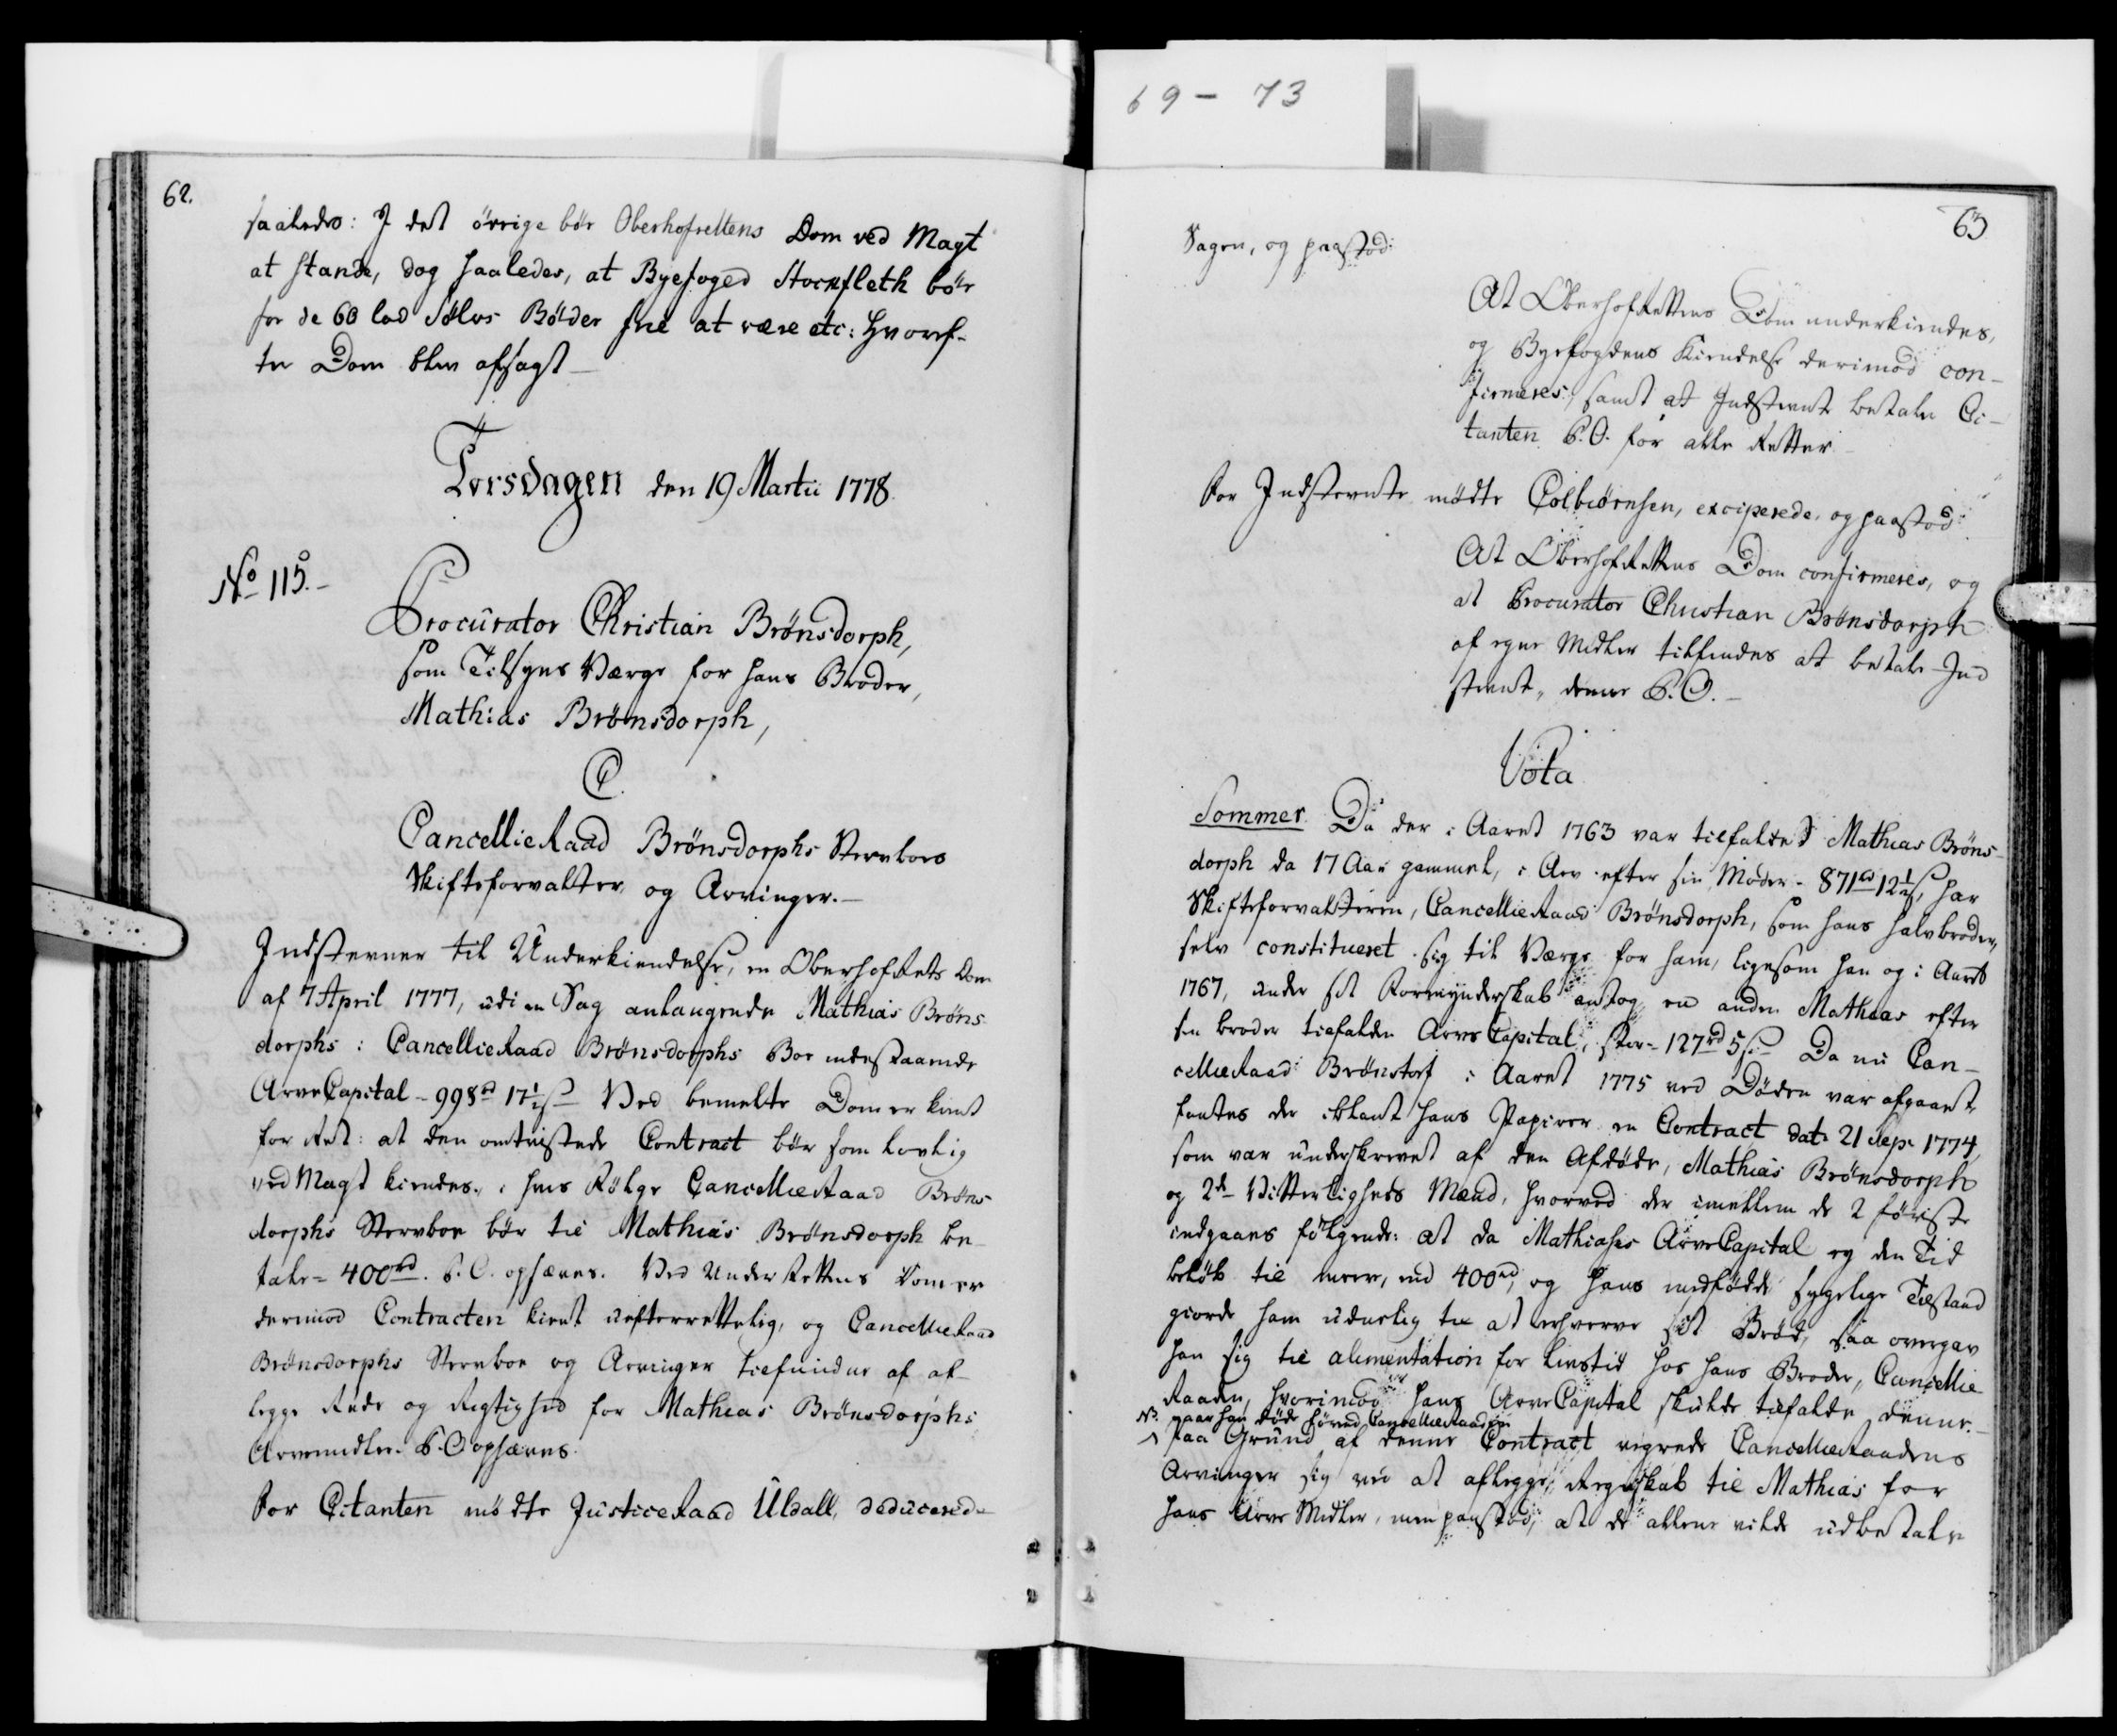 69 - 73
62.
saaledes: I det övrige bör Oberhofrettens Dom ved Magt
at stande, dog saaledes, at Byefoged Stockfleth bör
for de 60 lod Sölvs Böder frie at være etc: hvoref-
ter Dom blev afsagt
Torsdagen den 19 Martii 1778.
No 115.
Procurator Christian Brönsdorph,
som Tilsyns Værge for hans Broder,
Mathias Brönsdorph,
C.
CancellieRaad Brönsdorphs Stervboes
Skifteforvalter og Arvinger.
Indstevner til Underkiendelse, en OberhofRets Dom
af 7 April 1777, udi en Sag anlangende Mathias Bröns
dorphs i CancellieRaad Brönsdorphs Boe indestaaende
ArveCapital - 998rd 17½ s Ved bemelte Dom er kient
for Ret: at den omtvistede Contract bör som lovlig
ved Magt kiendes, i hvis Fölge CancellieRaad Bröns
dorphs Stervboe bör til Mathias Brönsdorph be-
tale = 400rd. P. O. ophæves. Ved UnderRettens Dom er
derimod Contracten kient uefterrettelig, og CancellieRaad
Brönsdorphs Stervboe og Arvinger tilfunden af af-
legge Rede og Rigtighed for Mathias Brönsdorphs
Arvemidler. P. O. ophæves.
For Citanten mödte JusticeRaad Uldall, deducerede
63
Sagen, og paastod:
At OberhofRettens Dom underkiendes,
og Byefogdens Kiendelse derimod con-
firmeres, samt at Indstevnte betaler Ci-
tanten P. O. for alle Retter
For Indstevnte mödte Colbiörnsen, exciperede, og paastod:
At OberhofRettens Dom confirmeres, og
at Procurator Christian Brönsdorph
af egne Midler tilfindes at betale Ind
stevnte, denne P. O.
Vota
Sommer. Da der i Aaret 1763 var tilfaldet Mathias Bröns-
dorph da 17 Aar gammel, i Arv efter sin Moder - 871rd 12½ s, har
Skifteforvalteren, CancellieRaad Brönsdorph, som hans halvbroder,
selv constitueret sig til Værge for ham, ligesom han og i Aaret
1767, under sit Formynderskab antog en anden Mathias efter
sin broder tilfalden Arve Capital, stor - 127rd 5 s Da nu Can-
cellieRaad Brönstorf i Aaret 1775 ved Döden var afgaaet,
fantes der iblant hans Papirer en Contract dat: 21 Sep. 1774,
som var underskrevet af den Afdöde, Mathias Brönsdorph
og 2de Vitterligheds Mænd, hvorved der imellem de 2 förste
indgaaes fölgende: at da Mathiases ArveCapital og den Tid
beløb til mere, end 400rd, og hans medfödde sygelige Tilstand
giorde ham uduelig til at erhverve sit Bröd, saa overgav
han sig til alimentation for Livstid hos hans Broder, Cancellie
Raaden, hvorimod hans ArveCapital skulde tilfalde denne.
naar han döde förend CancellieRaaden
Paa Grund af denne Contract vegrede CancellieRaadens
Arvinger sig ved at aflegge Regnskab til Mathias for
hans Arve Midler, men paastod, at de allene vilde udbetale